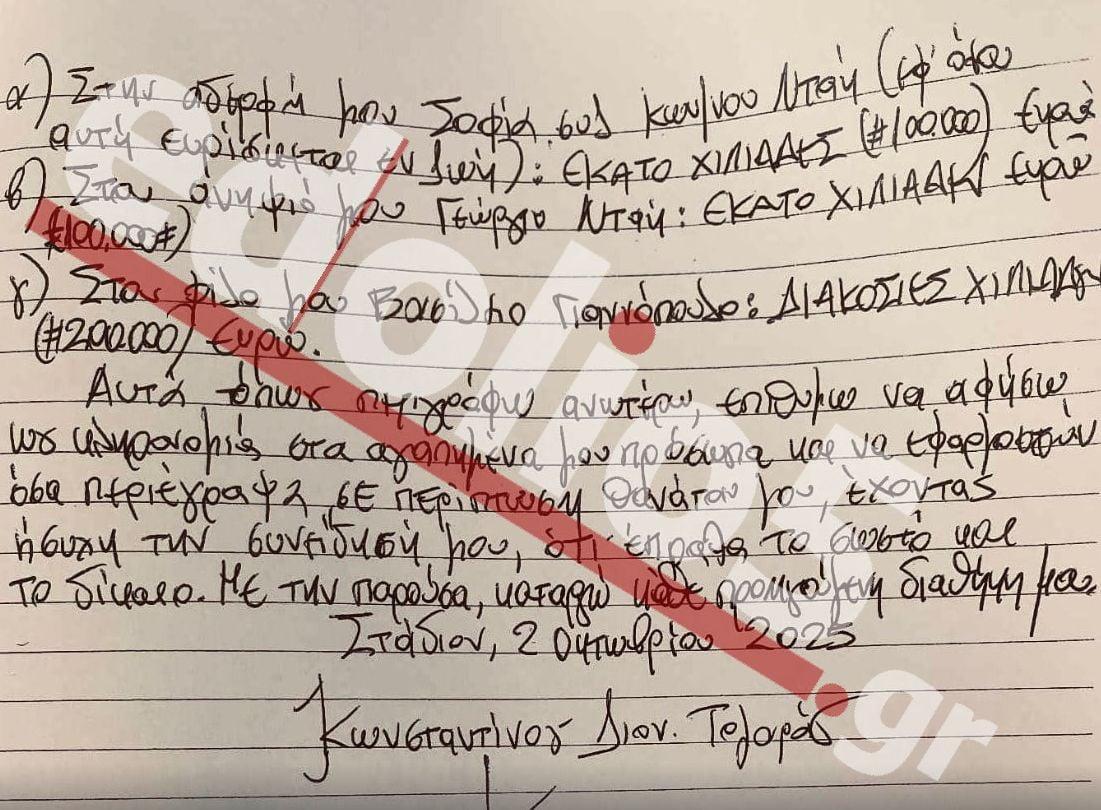 α) Στην αδερφή μου Σοφία συζ Κων/νου Νταή (εφ' όσον
αυτή ευρίσκεται εν ζωή): ΕΚΑΤΟ ΧΙΛΙΑΔΕΣ (#100.000) Ευρώ
β) Στον ανηψιό μου Γεώργιο Νταή: ΕΚΑΤΟ ΧΙΛΙΑΔΕΣ Ευρώ
(#100.000#)
γ) Στον φίλο μου Βασίλειο Γιαννόπουλο: ΔΙΑΚΟΣΙΕΣ ΧΙΛΙΑΔΕΣ
(#200.000) Ευρώ.
Αυτά όπως περιγράφω ανωτέρω, επιθυμώ να αφήσω
ως κληρονομιά στα αγαπημένα μου πρόσωπα και να εφαρμοστούν
όσα περιέγραψα, σε περίπτωση θανάτου μου, έχοντας
ήσυχη την συνείδησή μου, ότι έπραξα το σωστό και
το δίκαιο. Με την παρούσα, καταργώ κάθε προηγούμενη διαθήκη μου.
Στάδιον, 2 Οκτωβρίου 2025
Κωνσταντίνος Διον. Τολοράς
edolios.gr